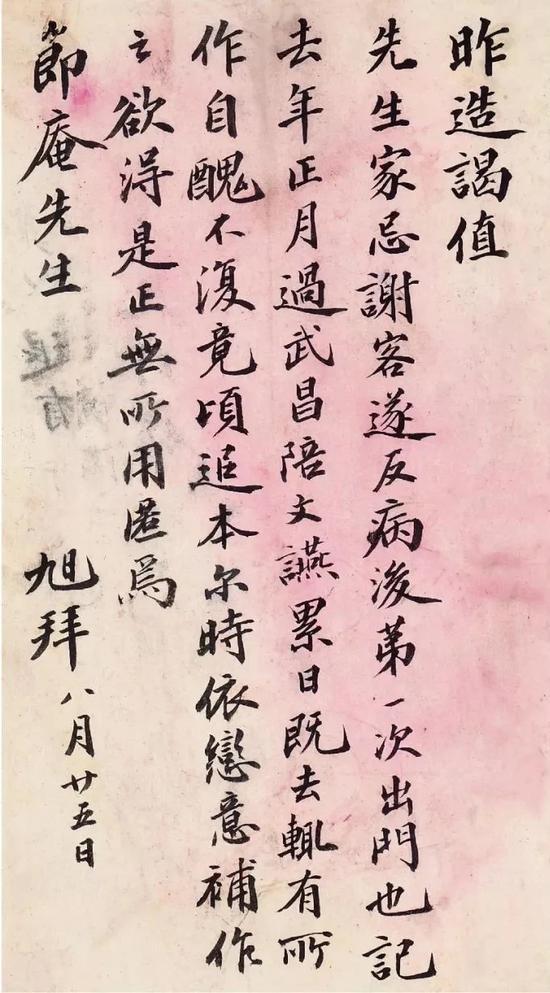 昨造謁值
先生家忌謝客遂反病後第一次出門也記
去年正月過武昌陪文讌累日既去輒有所
作自醜不復竟頃追本尔時依戀意補作
云欲得是正無所用匿焉
節庵先生
旭拜 八月廿五日